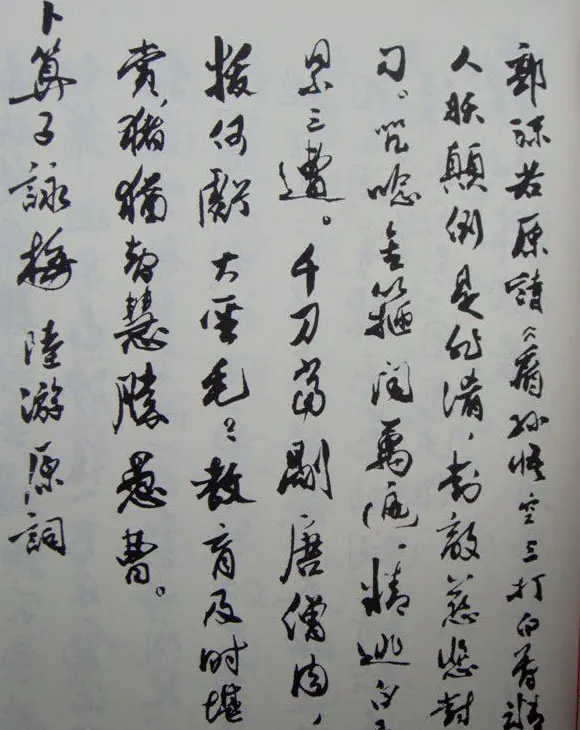 郭沫若原詩《看孫悟空三打白骨精
人妖顛倒是非淆，對敵慈悲對
刁。咒唸金箍聞萬遍，精逃白
累三遭。千刀當剮唐僧肉，
拔何虧大聖毛？教育及時堪
賞，猪猶智慧勝愚曹。
卜算子 詠梅 陸游原詞